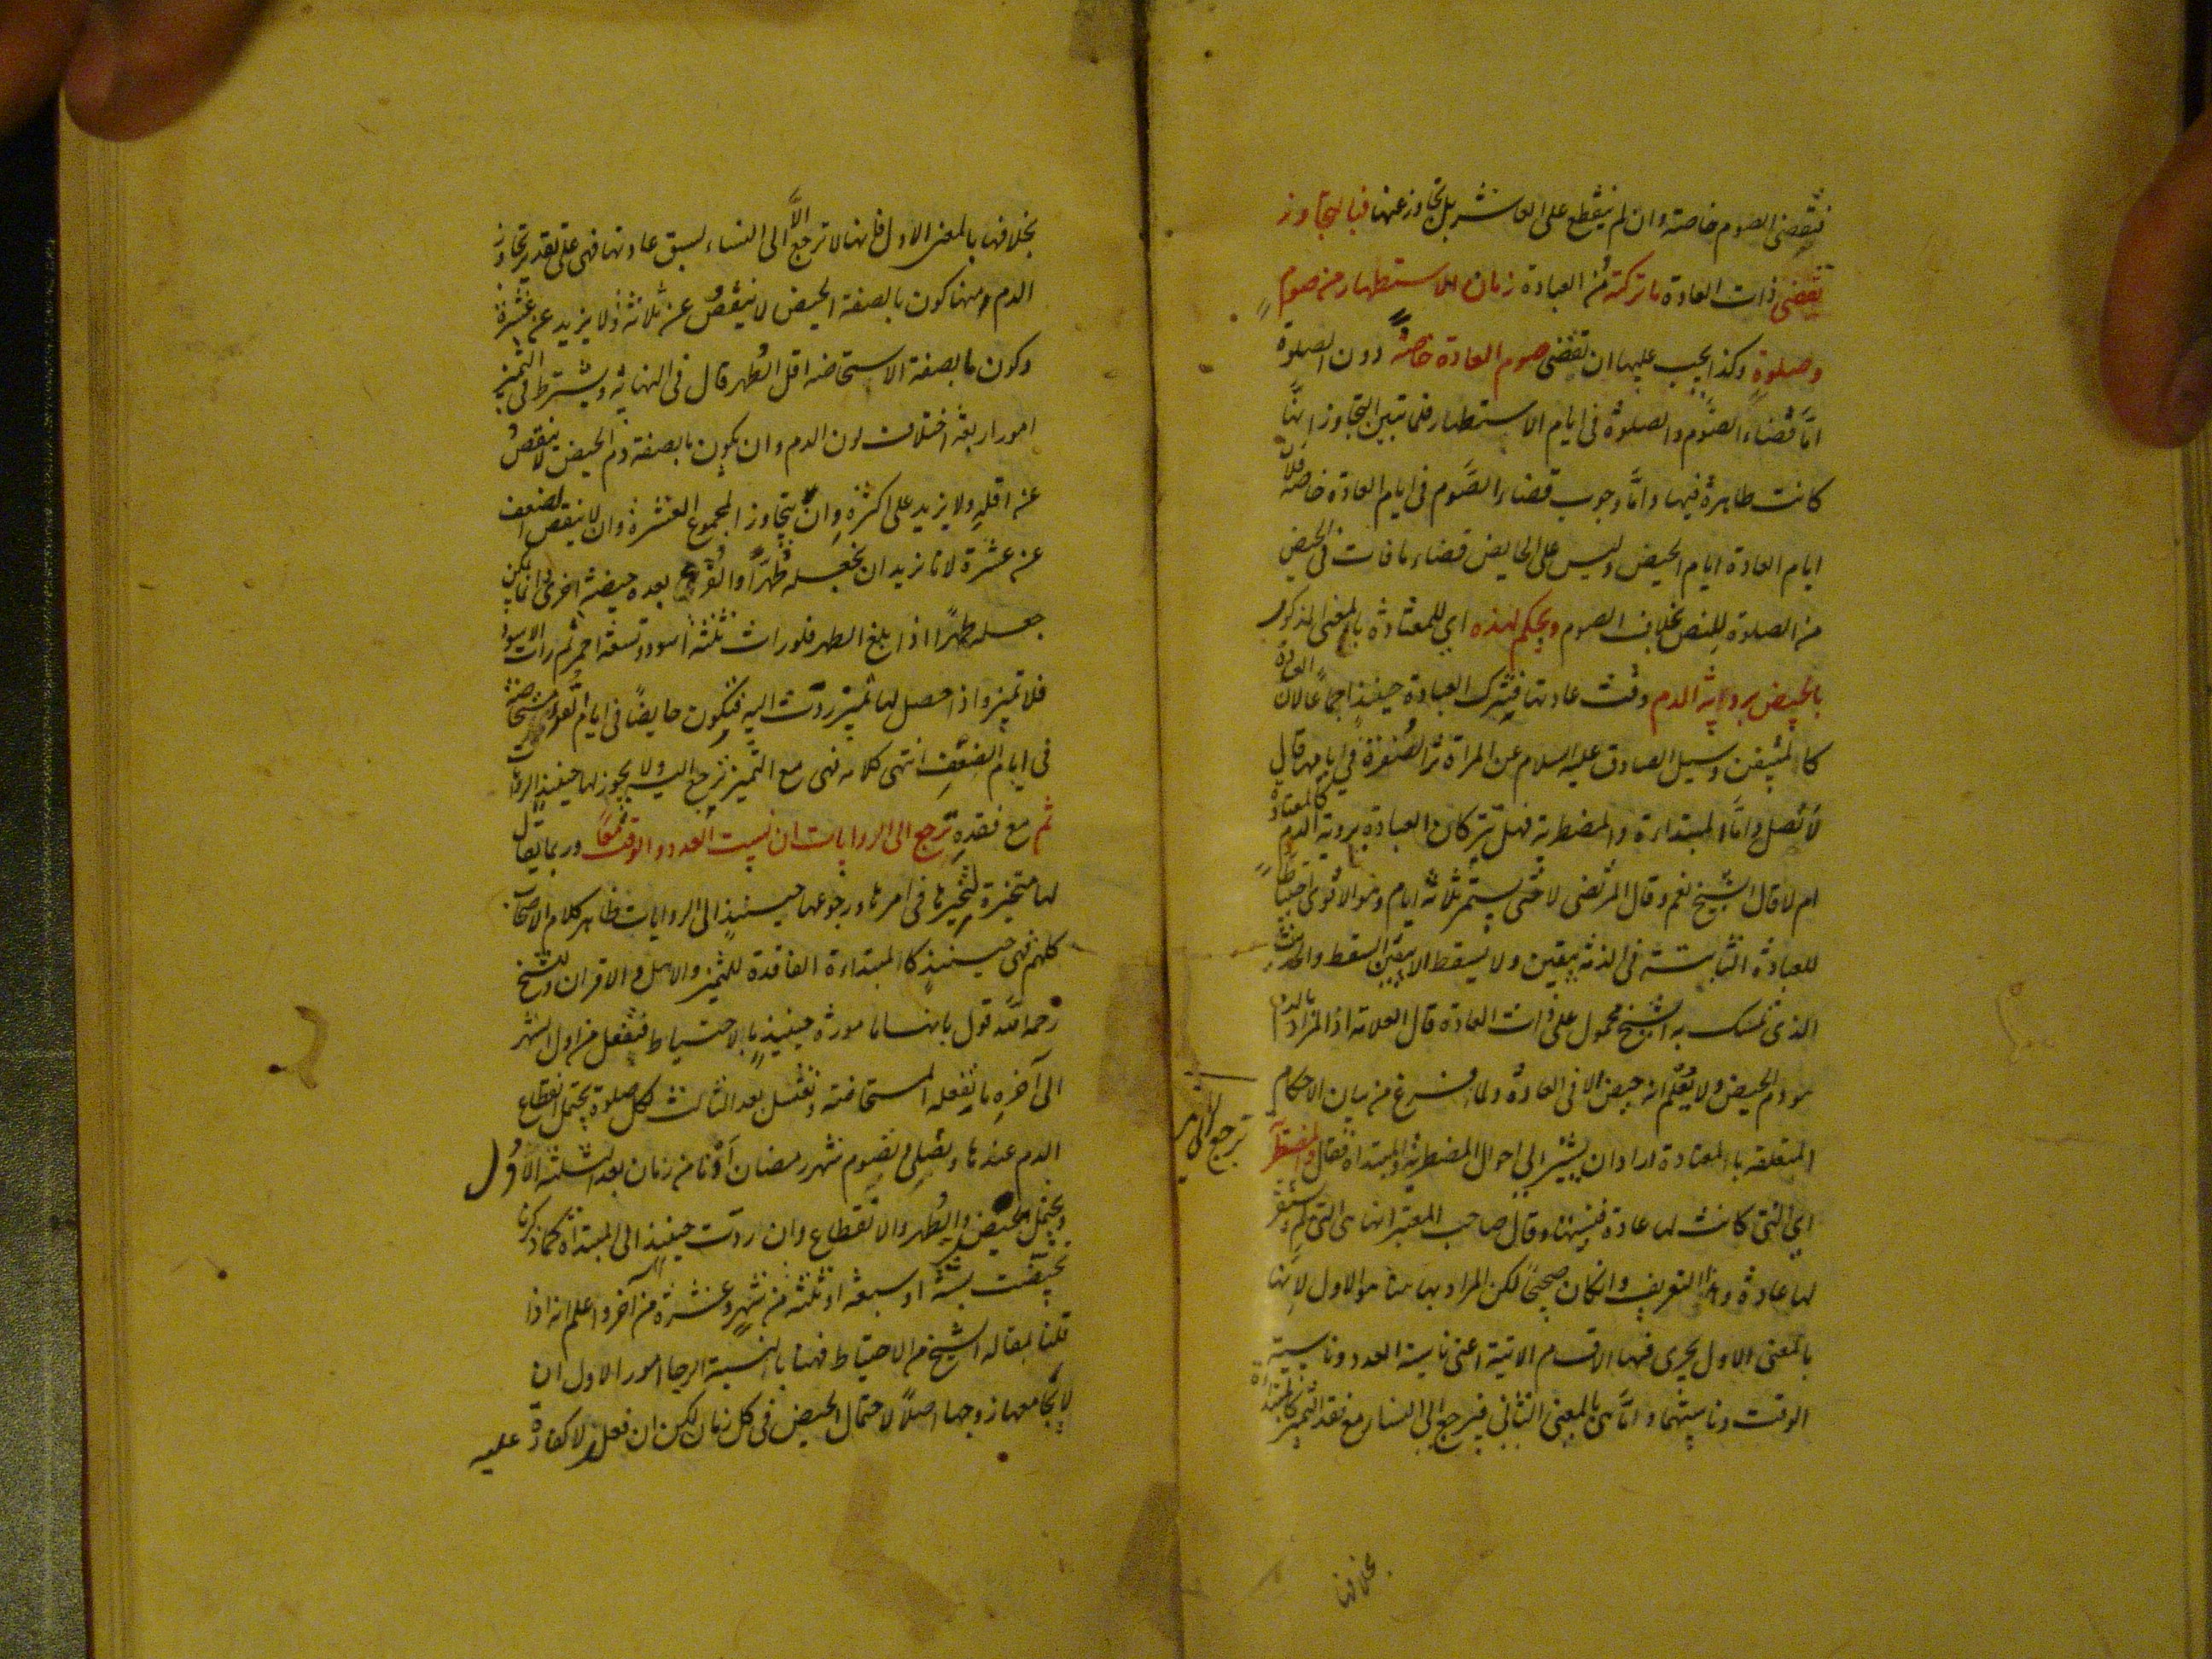 فتقضى الصوم خاصة وان لم ينقطع على العاشر بل تجاوز عنها فبالتجاوز
تقضى ذات العادة ما تركته من العبادة زمان الاستظهار من صوم
وصلوة وكذا يجب عليها ان تقضى صوم العادة خاصة دون الصلوة
اما قضاء الصوم والصلوة فى ايام الاستظهار فلما تبين التجاوز انها
كانت طاهرة فيها واما وجوب قضاء الصوم فى ايام العادة خاصة فلان
ايام العادة ايام الحيض وليس على الحايض قضاء ما فات فى الحيض
من الصلوة للنص بخلاف الصوم ويحكم لهذه اى للمعتادة بالمعنى المذكور
بالحيض بروية الدم وقت عادتها فتترك العبادة حينئذ اجماعا لان العادة
كالمتيقن وسيل الصادق عليه السلام عن المراة ترا الصفرة فى ايامها قال
لا تصل واما المبتداءة والمضطربة فهل تتركان العبادة بروية الدم كالمعتادة
ام لا قال الشيخ نعم وقال المرتضى لا حتى يستمر ثلاثة ايام وهو الاقوى احتياطا
للعبادة الثابتة فى الذمة بيقين ولا يسقط الا بيقين السقط والحديث
الذى تمسك به الشيخ محمول على ذات العادة قال العلامة اذ المراد بالدم
هو دم الحيض ولا يعلم انه حيض الا فى العادة ولما فرغ من بيان الاحكام
المتعلقة بالمعتادة اراد ان يشير الى احوال المضطربة والمبتداة فقال والمضطربة
اى التى كانت لها عادة فنسيتها وقال صاحب المعتبر انها هى التى لم تستقر
لها عادة وهذا التعريف وانكان صحيحا لكن المراد بها هنا هو الاول لانها
بالمعنى الاول يجرى فيها الاقسام الاتية اعنى ناسية العدد وناسية
الوقت وناسيتهما واما هى بالمعنى الثانى فيرجع الى النساء مع فقد التميز كالمبتداة
ترجع الى
بخلافها
بخلافها بالمعنى الاول فانها لا ترجع الى النساء لسبق عادتها فهى على تقدير تجاوز
الدم وههنا كون ما بصفة الحيض لا ينقص عن ثلاثة ولا يزيد عن عشرة
وكون ما بصفة الاستحاضه اقل الطهر قال فى النهاية ويشترط فى التميز
امور اربعة اختلاف لون الدم وان يكون ما بصفة دم الحيض لا ينقص
عن اقله ولا يزيد على اكثره وان يتجاوز المجموع العشرة وان لا ينقص الضعيف
عن عشرة لانا نريد ان نجعله طهرا والقوى بعده حيضة اخرى وانما يمكن
جعله طهرا اذا بلغ الطهر فلو رات ثلثة اسود وتسعة احمر ثم رات الاسود
فلا تميز واذا حصل لها تميز ردت اليه فتكون حايضا فى ايام القوى مستحاضة
فى ايام الضعيف انتهى كلامه فهى مع التميز ترجع اليه ولا يجوز لها حينئذ
ثم مع فقده ترجع الى الروايات ان نسيت العدد والوقت معا وربما يقال
لها متحيرة لتحيرها فى امرها ورجوعها حينئذ الى الروايات ظاهر كلام الاصحاب
كلهم فهى حينئذ كالمبتداءة الفاقدة للتميز والاهل والاقران وللشيخ
رحمه الله قول بانها مامورة حينئذ بالاحتياط فتفعل من اول الشهر
الى آخره ما تفعله المستحاضة وتغتسل بعد الثالث لكل صلوة يحتمل انقطاع
الدم عندها وتصلى وتصوم شهر رمضان اذ ما من زمان بعد الثلثة الاول
ويحتمل الحيض والطهر والانقطاع وان ردت حينئذ الى المبتداة كما ذكرنا
تحيضت ستة او سبعة او ثلثة من شهر وعشرة من آخر واعلم انه اذا
قلنا بمقالة الشيخ من الاحتياط فهنا بالنسبة اليها امور الاول ان
لا يجامعها زوجها اصلا لاحتمال الحيض فى كل زمان لكن ان فعل لا كفارة عليه